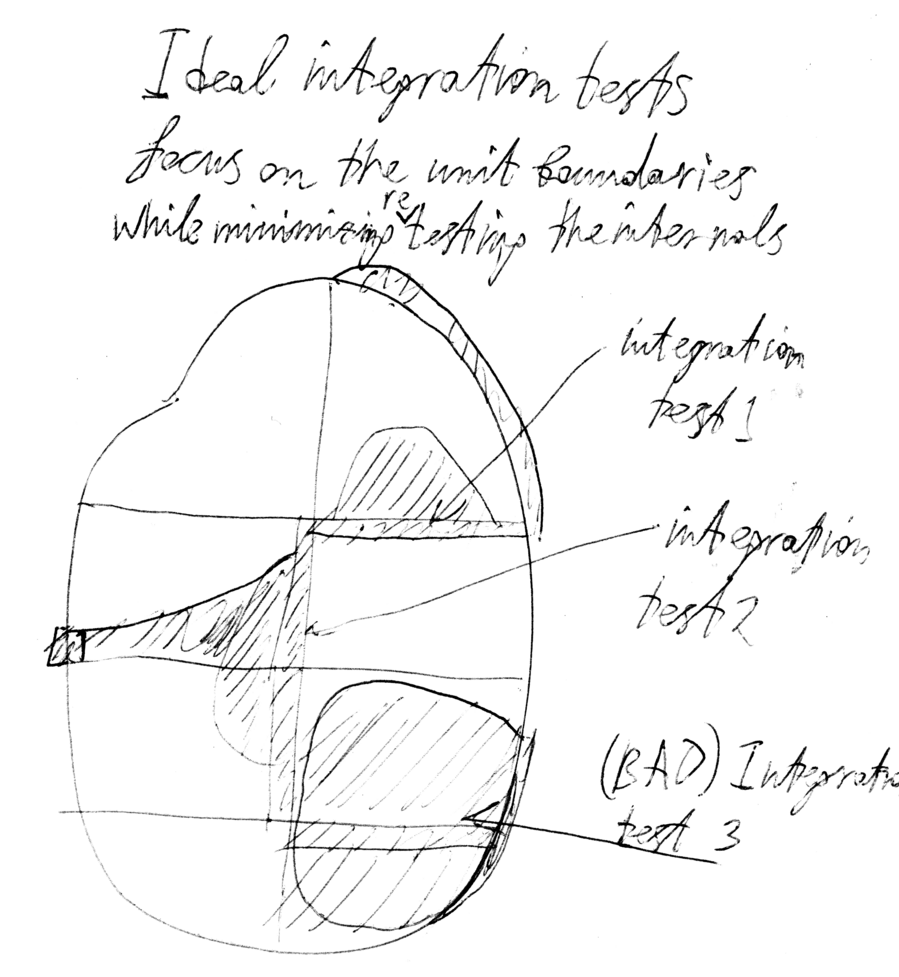 Ideal integration tests
focus on the unit boundaries
re
while minimizing testing the internals
integration
test 1
integration
test 2
(BAD) Integratio
test 3